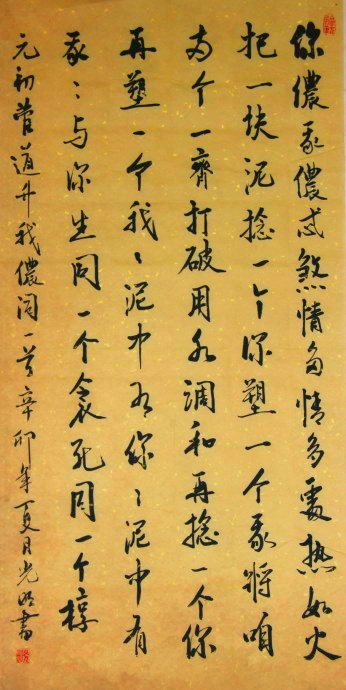 你儂我儂忒煞情多情多處热如火
把一块泥捻一个你塑一个我将咱
两个一齊打破用水调和再捻一个你
再塑一个我〻泥中有你〻泥中有
我〻与你生同一个衾死同一个椁
元初管道升我儂词一首辛卯年夏月光書